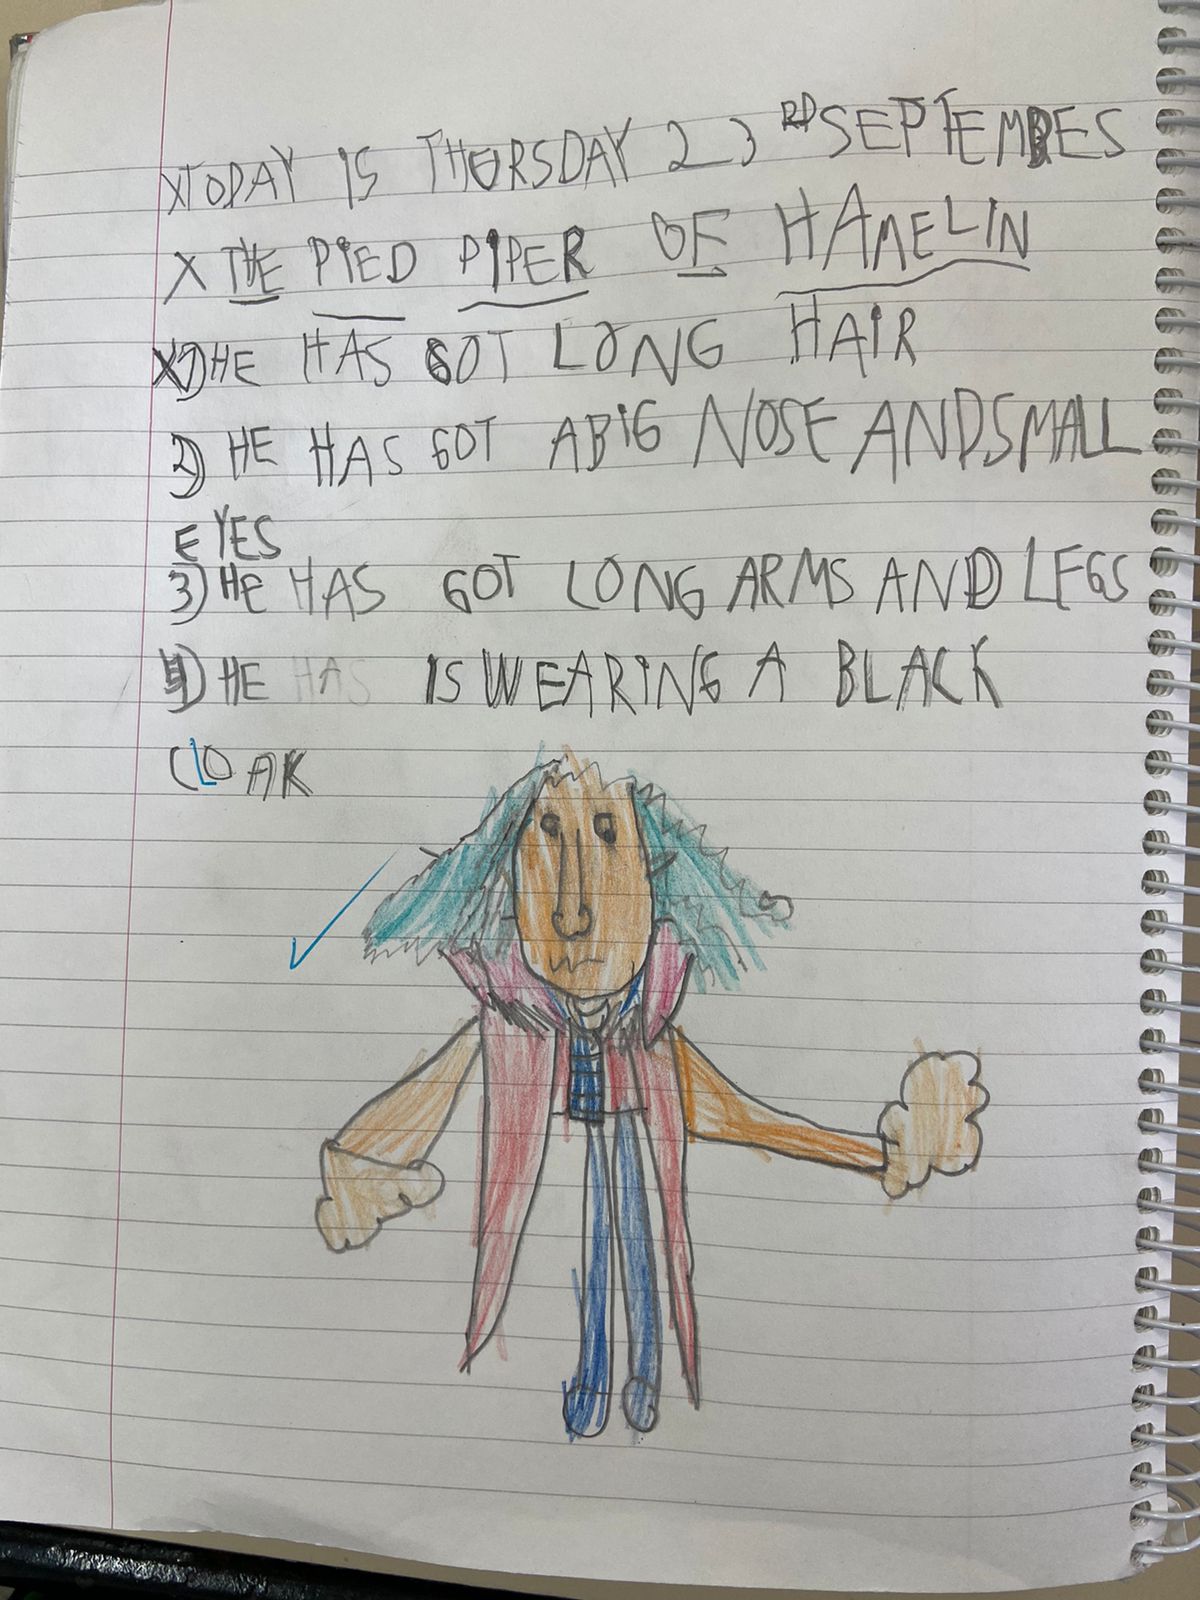 XTODAY IS THURSDAY 23RD SEPTEMBES
X THE PIED PIPER OF HAMELIN
X1) HE HAS GOT LONG HAIR
2) HE HAS GOT A BIG NOSE AND SMALL
EYES
3) HE HAS GOT LONG ARMS AND LEGS
4) HE HAS IS WEARING A BLACK
CLOAK